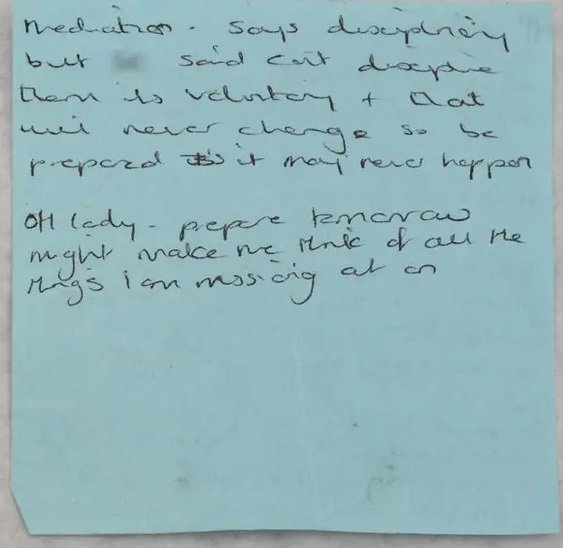 Mediation - says disciplinary
but said cant discipline
them its voluntary + that
will never change so be
prepared it may never happen
OH lady - prepare tomorrow
might make me think of all the
things I am missing out on